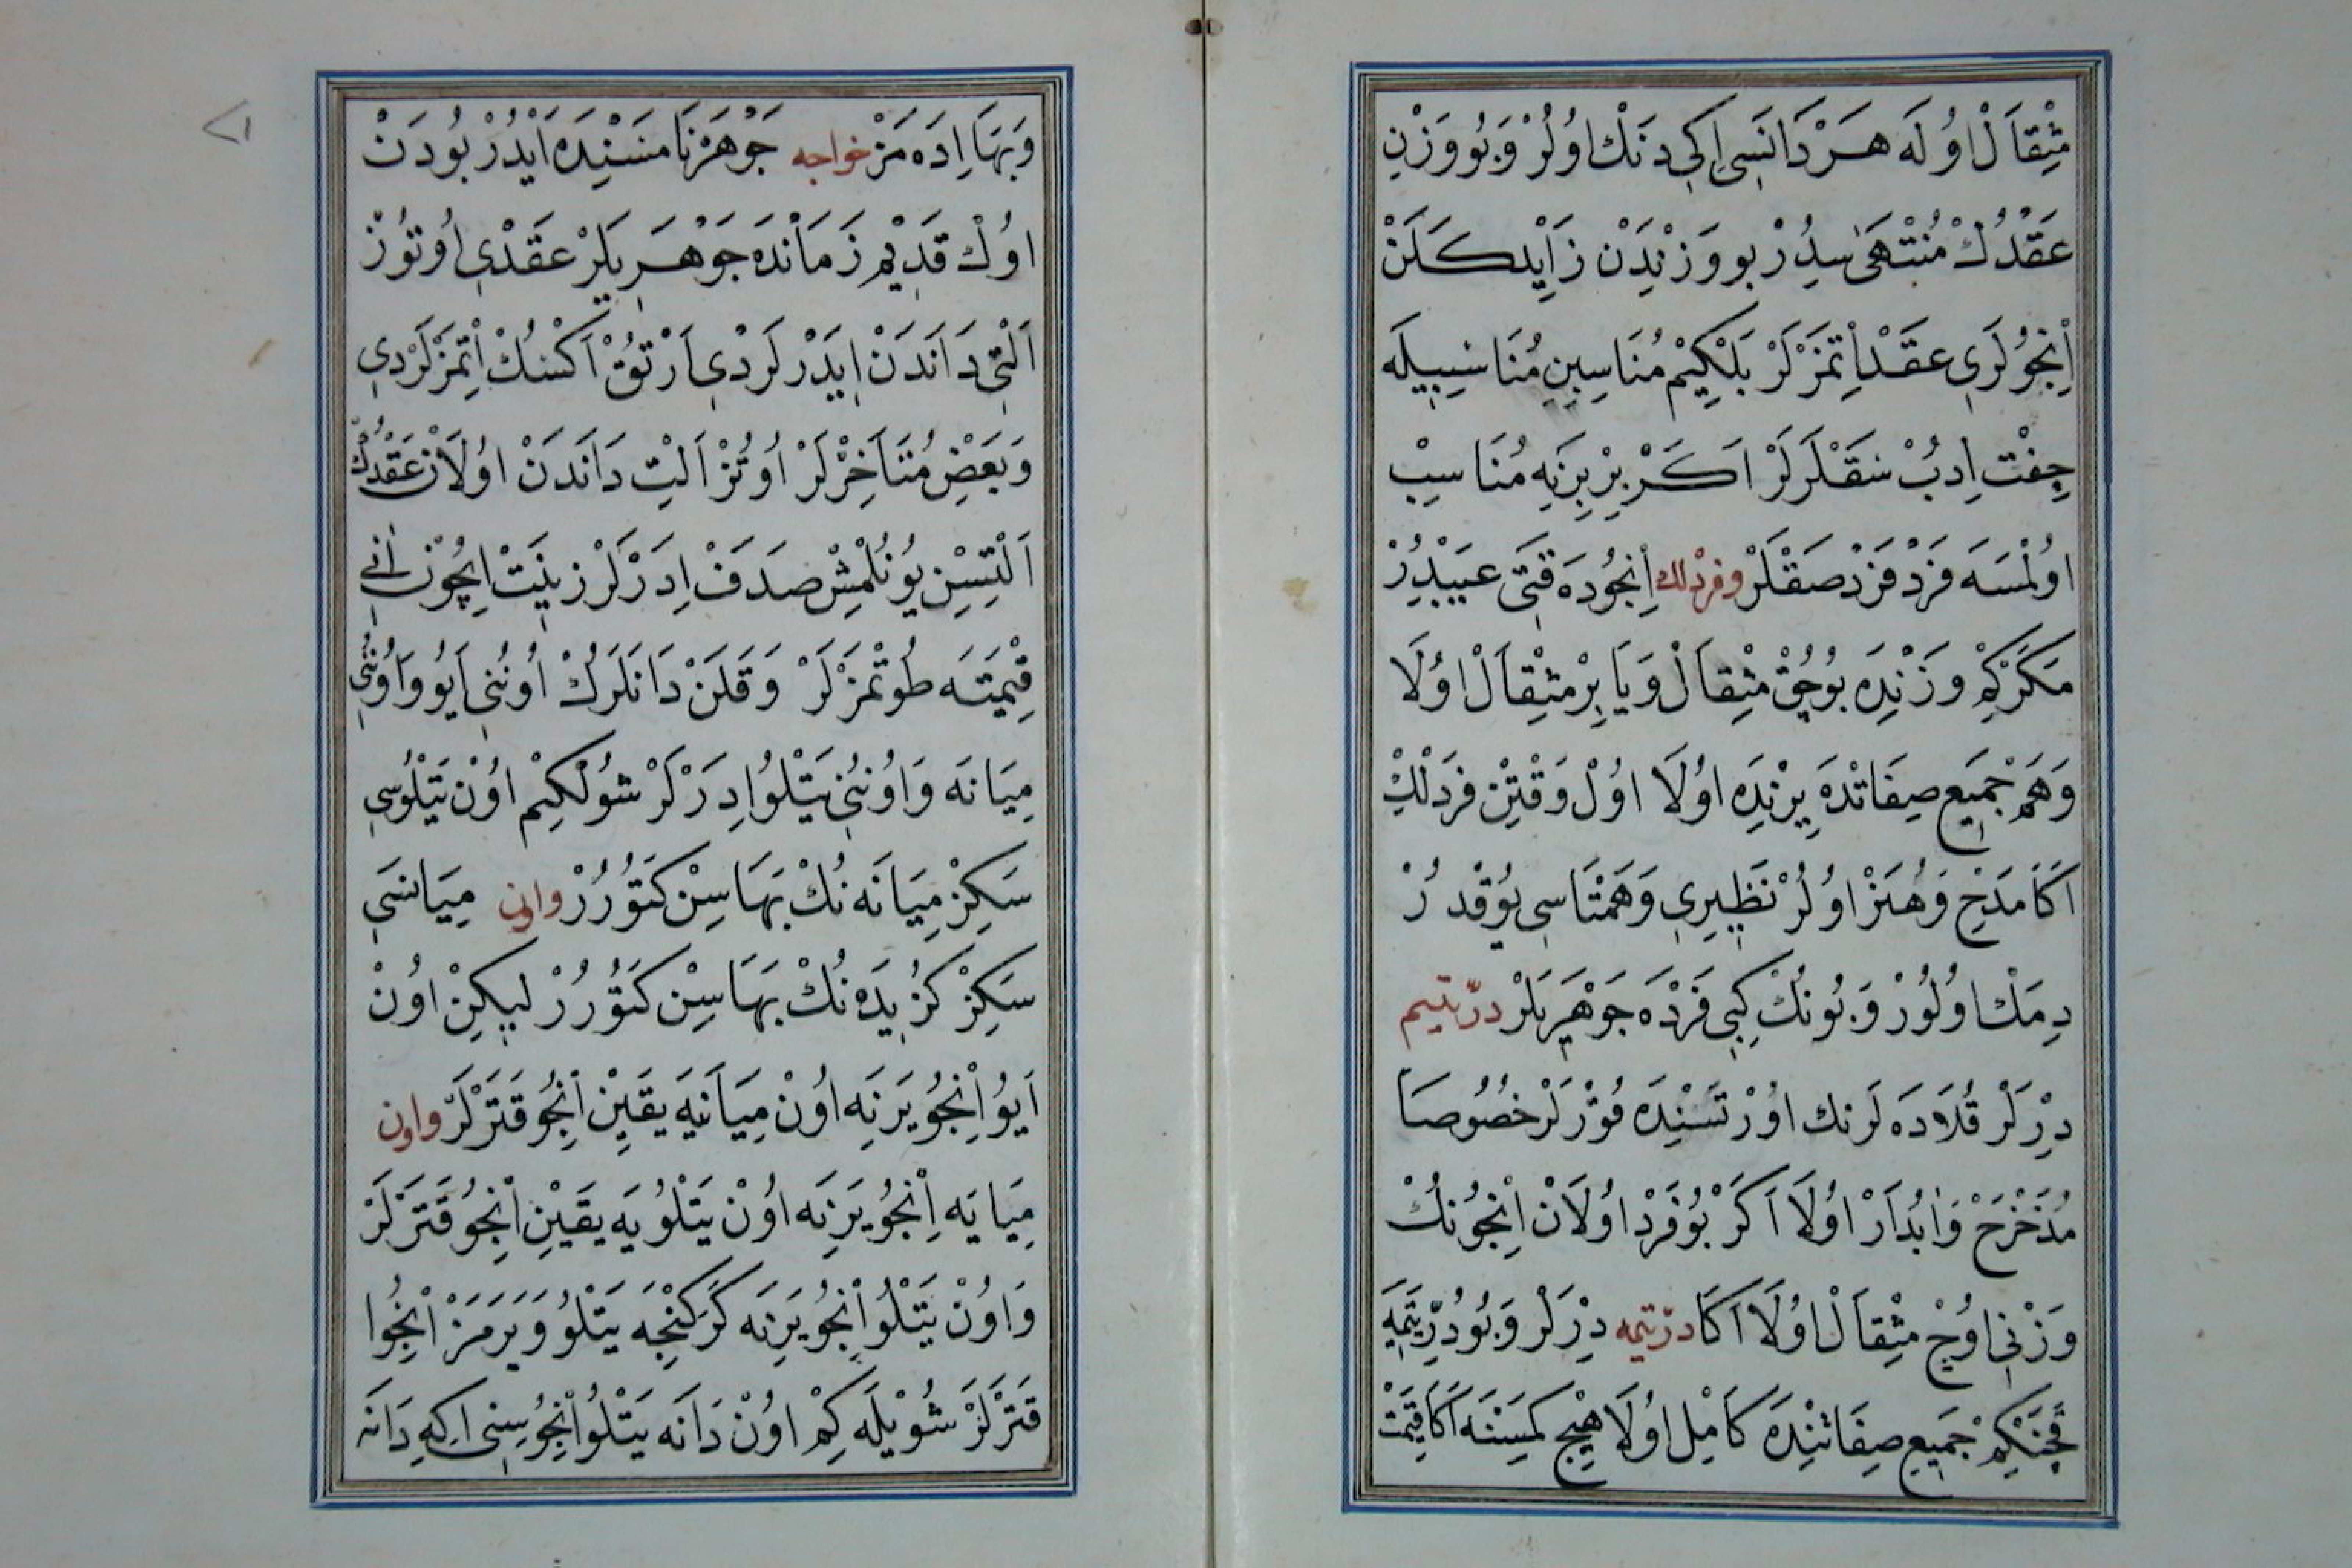 مِثْقَالْ اُولَه هَرْدَانَسِی اِکِی دَنْك اُولُرْ وَبُو وَزْنِ
عَقْدُكْ مُنْتَهَىٰ سِدُرْ بو وَزْنِدَنْ زَايِد كَلَنْ
اِنْجُولَرِی عَقْدْ اِتْمَزْلَرْ بَلْكِیمْ مُنَاسِبِنِ مُنَاسِبِیلَه
جِفْت اِدِبْ سَقْلَرلَرْ اَكَرْ بِرْبِرِنَه مُنَاسِبْ
اُولْمَسَه فَرْدْ فَرْدْ صَقْلَرْ وفردلك اِنْجُودَه قَتِی عَیبْدُرْ
مَكَرْكِمْ وَزْنِدَه بُوجُقْ مِثْقَالْ وَیَا بِرْ مِثْقَالْ اُولَا
وَهَمْ جَمِیعِ صِفَاتْدَه یِرِنْدَه اُولَا اُولْ وَقْتِنْ فَرْدلِكْ
اَكَا مَدْحْ وَهُنَرْ اُولُرْ نَظِیرِی وَهَمْتَاسِی یُوقْدُرْ
دِمَكْ اُولُورْ وَبُونُكْ كِبِی فَرْدَه جَوْهَرِیلَرْ درّ یتیم
دِرْلَرْ قُلَادَه لَرنك اُورْتَسِنْدَه قُوْرلَرْ خُصُوصًا
مُدَحْرَجْ وَابُدَارْ اُولَا اَكَرْ بُو فَرْدْ اُولَانْ اِنْجُونُكْ
وَزْنِی اُوچْ مِثْقَالْ اُولَا اَكَا درّ یتیمه دِرْلَرْ وَبُو دُرِّ یَتِمَه
قَچَنْكِمْ جَمِیعِ صِفَاتِنْدَه كَامِلْ اُولَا هِیچْ كِمْسَنَه اَكَا قِیمَتْ
وَبَهَا اِدَه مَزْ خواجه جَوْهَرْنَامَسِنْدَه اَیْدُرْ بُودَنْ
اُولْ قَدِیمْ زَمَانْدَه جَوْهَرِیلَرْ عَقْدِی اُوتُوزْ
اَلْتِی دَانَدَنْ اِیدَرْلَرْدِی اَرْتُقْ اَكْسُكْ اِتْمَزْلَرْدِی
وَبَعْضِ مُتَاَخِرْلَرْ اُوتُزْ اَلْتِ دَانَدَنْ اُولَانْ عَقْدُكْ
اَلْتِسِنْ یُونُلْمِشْ صَدَفْ اِدَرْلَرْ زِینَتْ اِیچُونْ اَنِی
قِیْمَتَه طُوتْمَزْلَرْ وَقَلَنْ دَانَلَرُكْ اُونُنِی اَیُو وَاُونُنِی
مِیَانَه وَاُونُنِی یَتْلُو اِدَرْلَرْ شُولْكِیمْ اُونْ یَتْلُوسِی
سَكِزْ مِیَانَه نُكْ بَهَاسِنْ كَتُورُرْ واون مِیَانَسِی
سَكِزْ كُزِیدَه نُكْ بَهَاسِنْ كَتُورُرْ لِیكِنْ اُونْ
اَیُو اِنْجُو یَرِنَه اُونْ مِیَانَیَه یَقِینْ اِنْجُو قَتَرْلَرْ واون
مِیَانَیَه اِنْجُو یَرِنَه اُونْ یَتْلُویَه یَقِینْ اِنْجُو قَتَرْلَرْ
وَاُونْ یَتْلُو اِنْجُو یَرِنَه كَرَكِنْجَه یَتْلُو وَیَرَمَزْ اِنْجُوا
قَتَرْلَرْ شُویْلَه كِمْ اُونْ دَانَه یَتْلُو اِنْجُوسِنِی اِكِه دَانَه